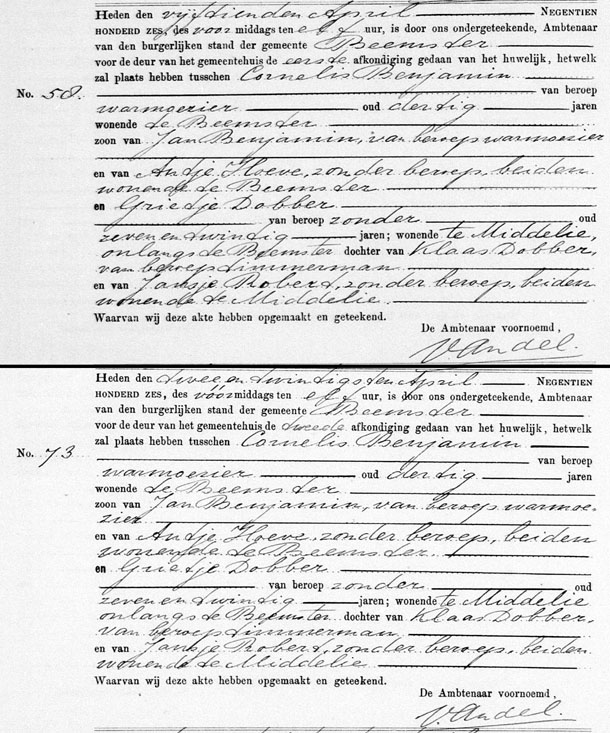 Heden den vijftienden April NEGENTIEN
HONDERD ZES, des voor middags ten elf uur, is door ons ondergeteekende, Ambtenaar
van den burgerlijken stand der gemeente Beemster
voor de deur van het gemeentehuis de eerste afkondiging gedaan van het huwelijk, hetwelk
zal plaats hebben tusschen Cornelis Benjamin
No. 58. van beroep
warmoezier oud dertig jaren
wonende te Beemster
zoon van Jan Benjamin, van beroep warmoezier
en van Antje Hoeve, zonder beroep, beiden
wonende te Beemster
en Grietje Dobber
van beroep zonder oud
zeven en twintig jaren; wonende te Middelie,
onlangs te Beemster dochter van Klaas Dobber,
van beroep timmerman
en van Jansje Robert, zonder beroep, beiden
wonende te Middelie.
Waarvan wij deze akte hebben opgemaakt en geteekend.
De Ambtenaar voornoemd,
V. Andel.
Heden den twee en twintigsten April NEGENTIEN
HONDERD ZES, des vóór middags ten elf uur, is door ons ondergeteekende, Ambtenaar
van den burgerlijken stand der gemeente Beemster
voor de deur van het gemeentehuis de tweede afkondiging gedaan van het huwelijk, hetwelk
zal plaats hebben tusschen Cornelis Benjamin
No. 73 van beroep
warmoezier oud dertig jaren
wonende te Beemster
zoon van Jan Benjamin, van beroep warmoe-
zier
en van Antje Hoeve, zonder beroep, beiden
wonende te Beemster
en Grietje Dobber
van beroep zonder oud
zeven en twintig jaren; wonende te Middelie
onlangs te Beemster dochter van Klaas Dobber,
van beroep timmerman,
en van Jansje Robert, zonder beroep, beiden
wonende te Middelie
Waarvan wij deze akte hebben opgemaakt en geteekend.
De Ambtenaar voornoemd,
V. Andel.